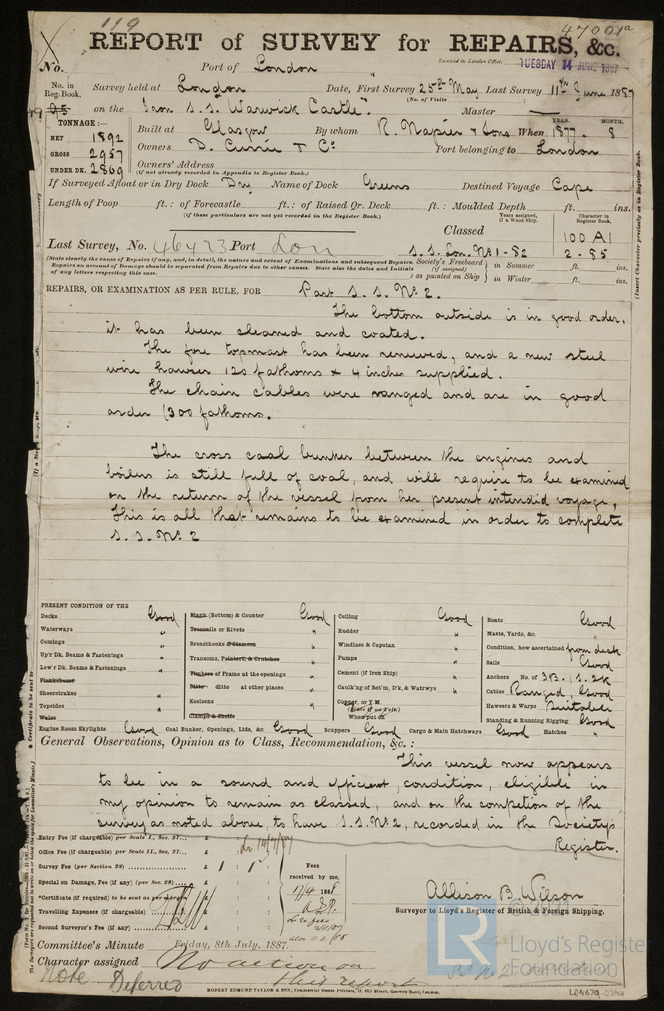 119
47001a
REPORT of SURVEY for REPAIRS, &c.
Received in London Office,
TUESDAY 14 JUNE 1887
No.
Port of London
No. in Reg. Book.
Survey held at London Date, First Survey 25th May Last Survey 11th June 1887
(No. of Visits
on the Iron S.S. "Warwick Castle". Master
TONNAGE:—
NET 1892
GROSS 2957
UNDER DK. 2869
Built at Glasgow By whom R. Napier & Sons When 1877 . 8
YEAR. MONTH.
Owners D. Currie & Co Port belonging to London
Owners' Address
(if not already recorded in Appendix to Register Book.)
If Surveyed Afloat or in Dry Dock Dry Name of Dock Greens Destined Voyage Cape
Length of Poop ft.: of Forecastle ft.: of Raised Qr. Deck ft.: Moulded Depth ft. ins.
(if these particulars are not yet recorded in the Register Book.)
Years assigned, if a Wood Ship.
Character in Register Book.
Last Survey, No. 46423 Port Lon
Classed 100 A1
S.S. Lon. No 1-82 2-85
(State clearly the cause of Repairs if any, and, in detail, the nature and extent of Examinations and subsequent Repairs.
Repairs on account of Damage should be separated from Repairs due to other causes. State also the dates and Initials
of any letters respecting this case.)
Society's Freeboard (if assigned) as painted on Ship
in Summer ft. ins.
in Winter ft. ins.
(Insert Character precisely as in Register Book.)
REPAIRS, OR EXAMINATION AS PER RULE, FOR Part S.S. No 2.
The bottom outside is in good order,
it has been cleaned and coated.
The fore topmast has been renewed, and a new steel
wire hawser 120 fathoms x 4 inches supplied.
The chain cables were ranged and are in good
order (300 fathoms.
The cross coal bunker between the engines and
boilers is still full of coal, and will require to be examined
on the return of the vessel from her present intended voyage,
This is all that remains to be examined in order to complete
S.S. No 2
PRESENT CONDITION OF THE
Decks Good
Waterways "
Comings "
Up'r Dk. Beams & Fastenings "
Low'r Dk. Beams & Fastenings "
Plankshears
Sheerstrakes "
Topsides "
Wales
Plank (Bottom) & Counter Good
Treenails or Rivets "
Breasthooks & Stemson "
Transoms, Pointers, & Crutches "
Timbers of Frame at the openings "
Ditto ditto at other places "
Keelsons "
Clamps & Shelfs
Ceiling Good
Rudder "
Windlass & Capstan "
Pumps "
Cement (if Iron Ship) "
Caulk'ng of Bot'm, D'k, & Waterwys "
Copper, or Y.M.
When put on
Boats Good
Masts, Yards, &c. "
Condition, how ascertained from deck
Sails Good
Anchors No. of 3B. 1S. 2K
Cables Ranged, Good
Hawsers & Warps Suitable
Standing & Running Rigging Good
Engine Room Skylights Good Coal Bunker, Openings, Lids, &c. Good Scuppers Good Cargo & Main Hatchways Good Hatches "
General Observations, Opinion as to Class, Recommendation, &c. :
This vessel now appears
to be in a sound and efficient, condition, eligible in
my opinion to remain as classed, and on the competion of the
survey as noted above, to have S.S. No 2, recorded in the Society's
Register.
Entry Fee (if chargeable) per Scale I., Sec. 27... £ : :
Office Fee (if chargeable) per Scale II., Sec. 27... £ : :
Survey Fee (per Section 28) £ 1 : 1 :
Special on Damage, Fee (if any) (per Sec. 28) £ : :
*Certificate (if required) to be sent as per margin £ : :
Travelling Expenses (if chargeable) £ : :
Second Surveyor's Fee (if any) £ : :
Fees received by me,
Allison B. Wilson
Surveyor to Lloyd's Register of British & Foreign Shipping.
Committee's Minute Friday, 8th July, 1887.
Character assigned No action on
this report
Note Deferred
ROBERT EDMUND TAYLOR & SON, Commercial Steam Printers, 19, Old Street, Goswell Road, London.
LR
Lloyd's Register
Foundation